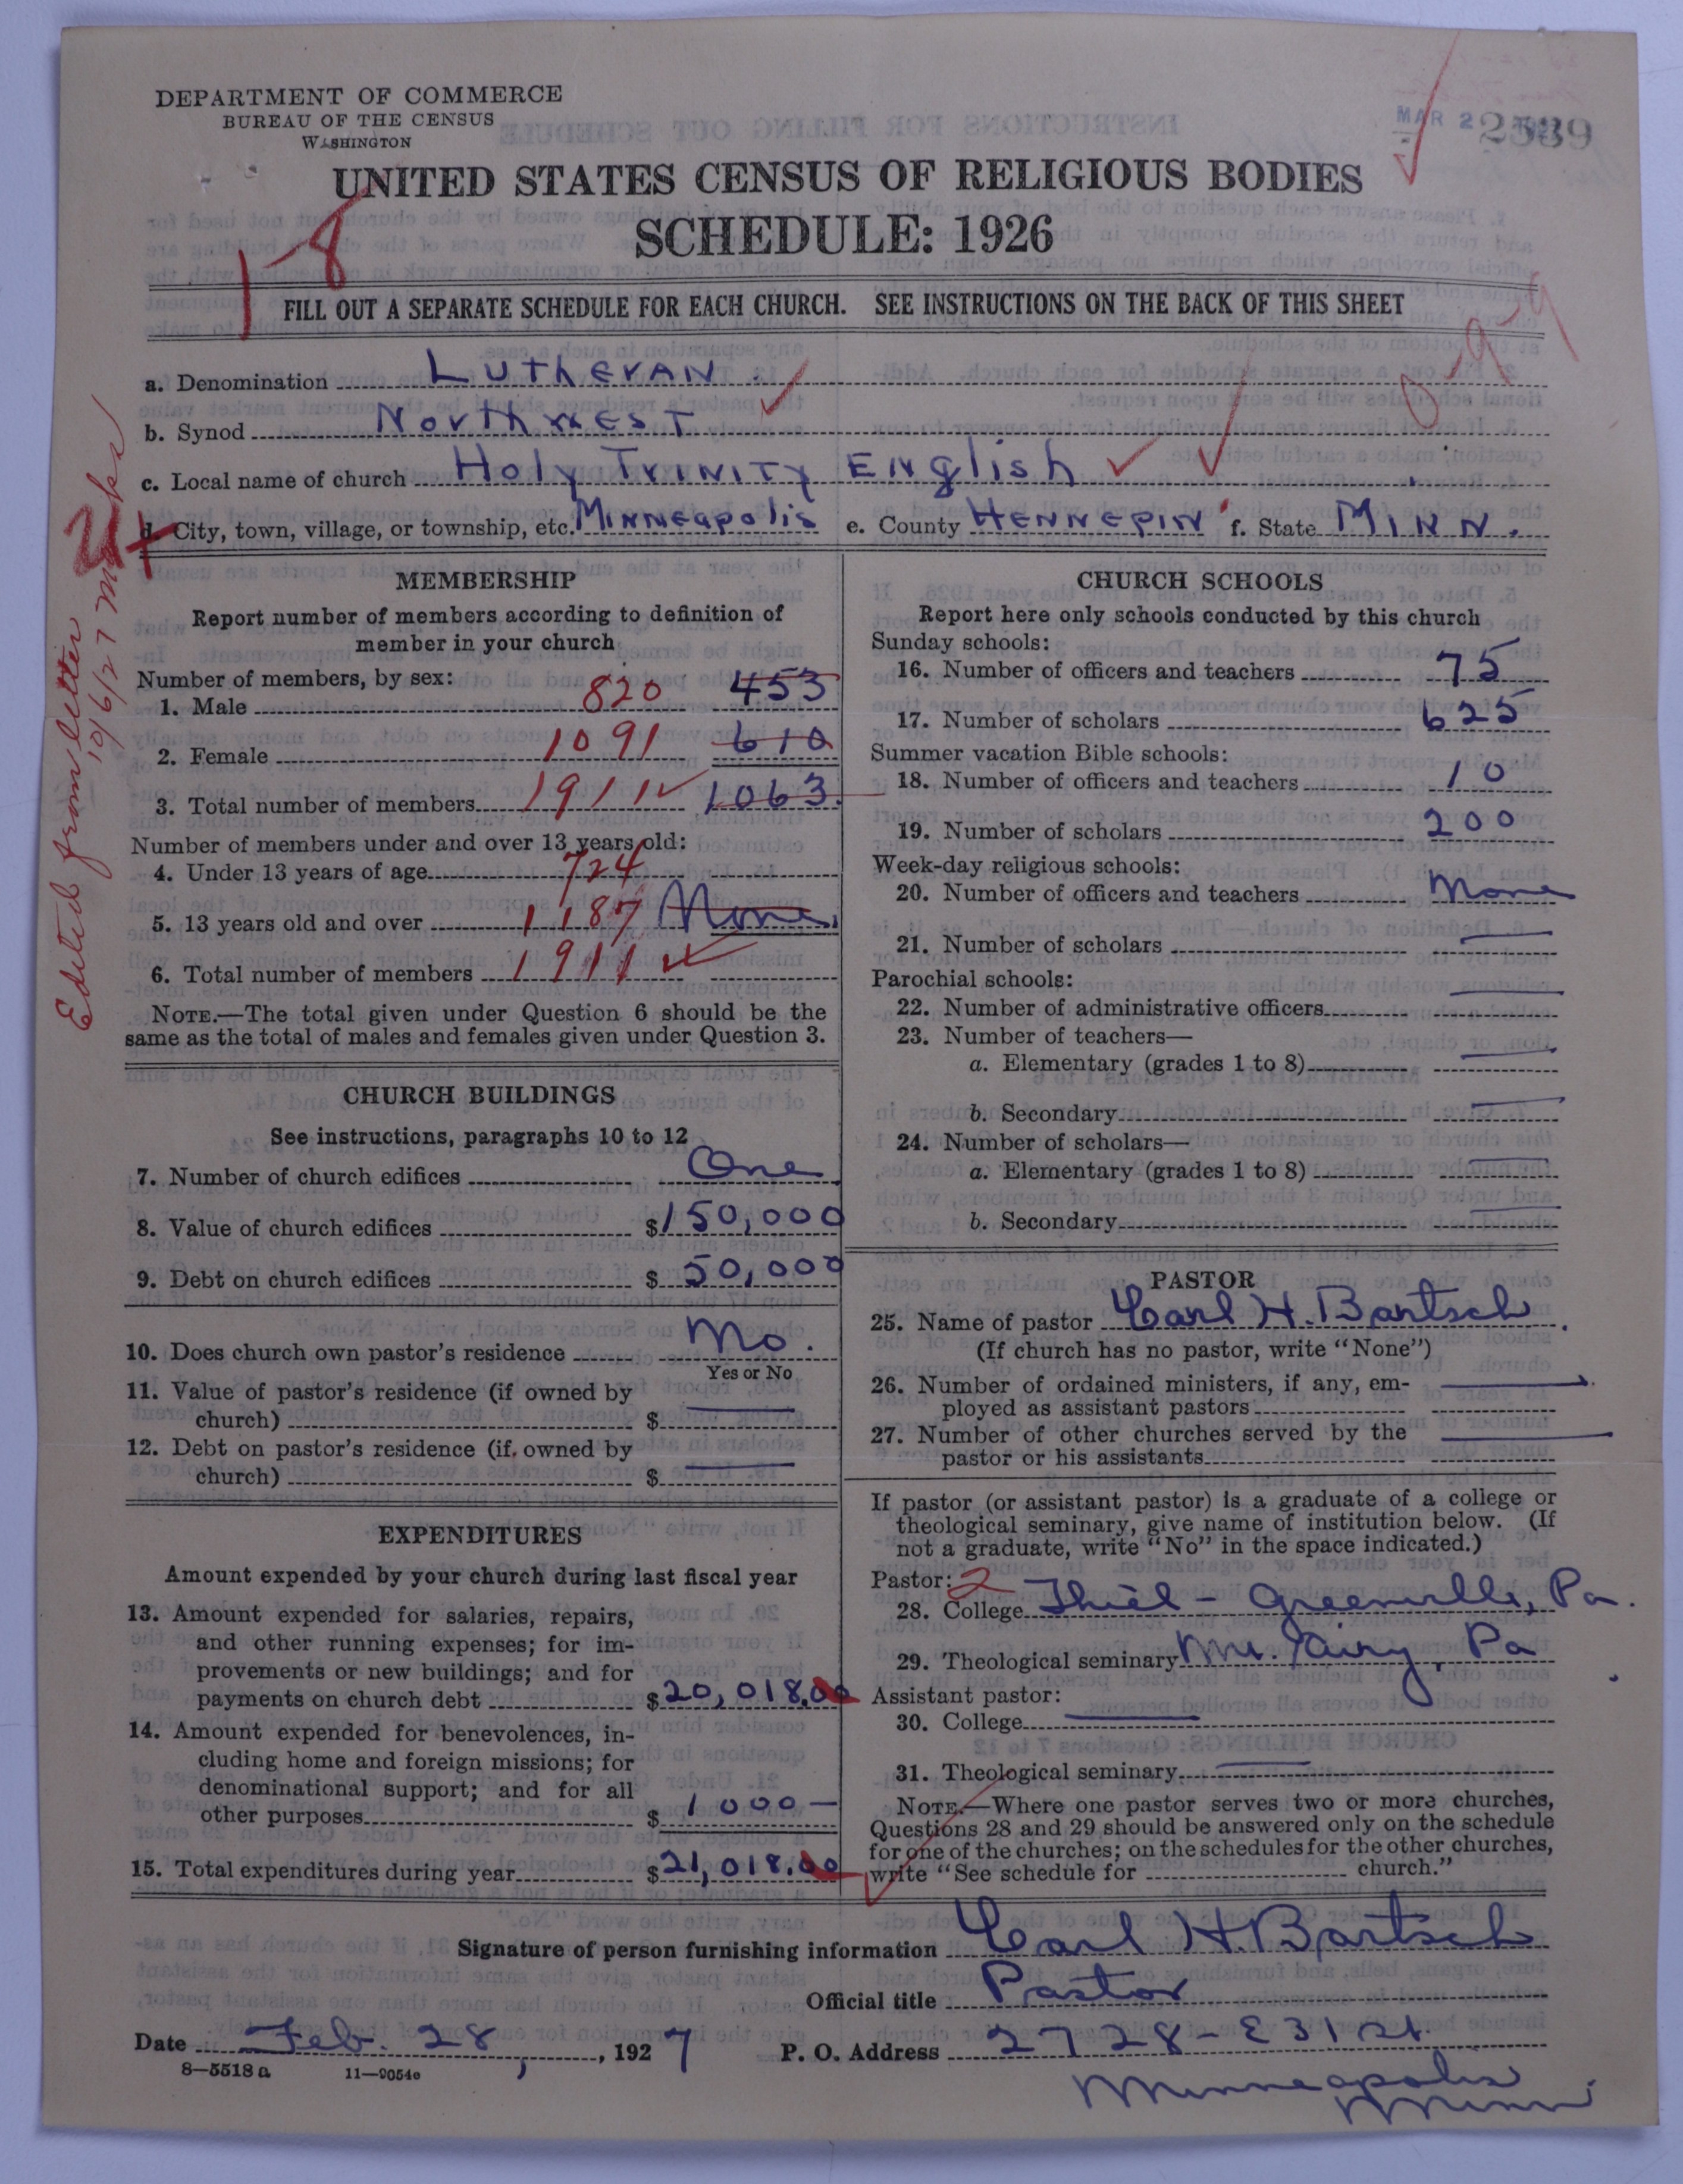 DEPARTMENT OF COMMERCE
BUREAU OF THE CENSUS
WASHINGTON
MAR 2
2539
UNITED STATES CENSUS OF RELIGIOUS BODIES
SCHEDULE: 1926
1-8
FILL OUT A SEPARATE SCHEDULE FOR EACH CHURCH. SEE INSTRUCTIONS ON THE BACK OF THIS SHEET
0-9-9
a. Denomination Lutheran.
b. Synod Northwest
c. Local name of church Holy Trinity English
d. City, town, village, or township, etc. Minneapolis e. County Hennepin f. State Minn.
Edited from letter
10/6/27
MEMBERSHIP
Report number of members according to definition of
member in your church
Number of members, by sex:
1. Male 820 453
2. Female 1091 610
3. Total number of members 1911 1063
Number of members under and over 13 years old:
4. Under 13 years of age 724
5. 13 years old and over 1187 None
6. Total number of members 1911
NOTE.—The total given under Question 6 should be the
same as the total of males and females given under Question 3.
CHURCH BUILDINGS
See instructions, paragraphs 10 to 12
7. Number of church edifices One
8. Value of church edifices $150,000
9. Debt on church edifices $50,000
10. Does church own pastor's residence No.
Yes or No
11. Value of pastor's residence (if owned by
church) $
12. Debt on pastor's residence (if owned by
church) $
EXPENDITURES
Amount expended by your church during last fiscal year
13. Amount expended for salaries, repairs,
and other running expenses; for im-
provements or new buildings; and for
payments on church debt $20,018.00
14. Amount expended for benevolences, in-
cluding home and foreign missions; for
denominational support; and for all
other purposes $1000—
15. Total expenditures during year $21,018.00
CHURCH SCHOOLS
Report here only schools conducted by this church
Sunday schools:
16. Number of officers and teachers 75
17. Number of scholars 625
Summer vacation Bible schools:
18. Number of officers and teachers 10
19. Number of scholars 200
Week-day religious schools:
20. Number of officers and teachers None
21. Number of scholars
Parochial schools:
22. Number of administrative officers
23. Number of teachers—
a. Elementary (grades 1 to 8)
b. Secondary
24. Number of scholars—
a. Elementary (grades 1 to 8)
b. Secondary
PASTOR
25. Name of pastor Carl H. Bartsch.
(If church has no pastor, write "None")
26. Number of ordained ministers, if any, em-
ployed as assistant pastors
27. Number of other churches served by the
pastor or his assistants
If pastor (or assistant pastor) is a graduate of a college or
theological seminary, give name of institution below. (If
not a graduate, write "No" in the space indicated.)
Pastor: 2
28. College Thiel - Greenville, Pa.
29. Theological seminary Mt. Airy, Pa
Assistant pastor:
30. College
31. Theological seminary
NOTE.—Where one pastor serves two or more churches,
Questions 28 and 29 should be answered only on the schedule
for one of the churches; on the schedules for the other churches,
write "See schedule for church."
Signature of person furnishing information Carl H. Bartsch
Official title Pastor
Date Feb. 28, 1927 P. O. Address 2728-E 31 St.
Minneapolis
Minn
8—5518a 11—9054e